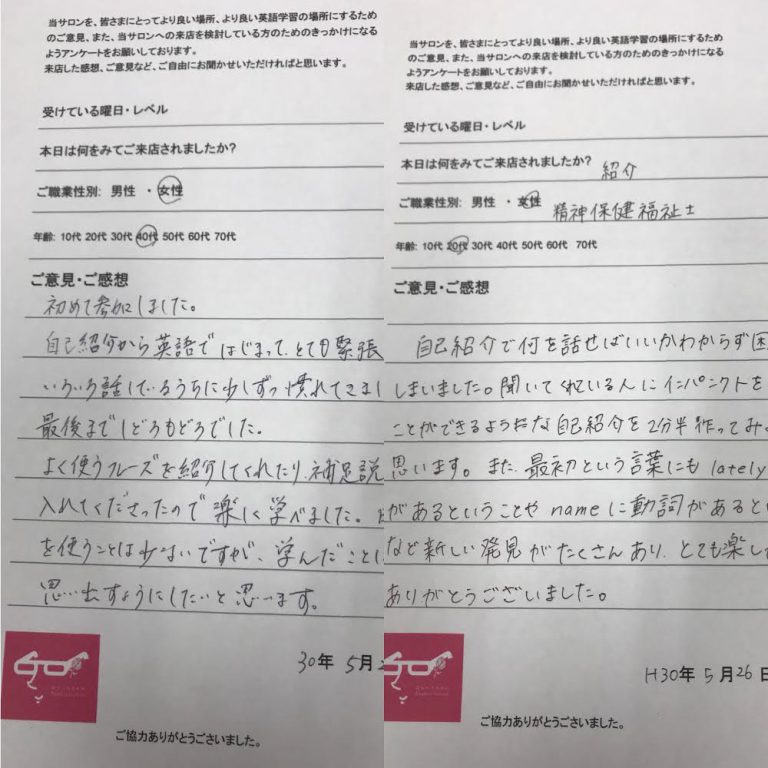 当サロンを、皆さまにとってより良い場所、より良い英語学習の場所にするため
のご意見、また、当サロンへの来店を検討している方のためのきっかけになる
ようアンケートをお願いしております。
来店した感想、ご意見など、ご自由にお聞かせいただければと思います。
受けている曜日・レベル
本日は何をみてご来店されましたか?
ご職業性別: 男性 ・女性
年齢: 10代 20代 30代 40代 50代 60代 70代
ご意見・ご感想
初めて参加しました。
自己紹介から英語ではじまって、とても緊張
いろいろ話しているうちに少しずつ慣れてきまし
最後までしどろもどろでした。
よく使うフレーズを紹介してくれたり、補足説
入れてくださったので楽しく学べました。
を使うことは少ないですが、学んだこと
思い出すようにしたいと思います。
30年 5月 2
ご協力ありがとうございました。
当サロンを、皆さまにとってより良い場所、より良い英語学習の場所にするため
のご意見、また、当サロンへの来店を検討している方のためのきっかけになる
ようアンケートをお願いしております。
来店した感想、ご意見など、ご自由にお聞かせいただければと思います。
受けている曜日・レベル
本日は何をみてご来店されましたか? 紹介
ご職業性別: 男性 ・女性 精神保健福祉士
年齢: 10代 20代 30代 40代 50代 60代 70代
ご意見・ご感想
自己紹介で何を話せばいいかわからず困
しまいました。聞いてくれている人にインパクトを
ことができるような自己紹介を2分半作ってみ
思います。また、最初という言葉にもlately
があるということやnameに動詞があると
など新しい発見がたくさんあり、とても楽し
ありがとうございました。
H30年 5月26日
ご協力ありがとうございました。